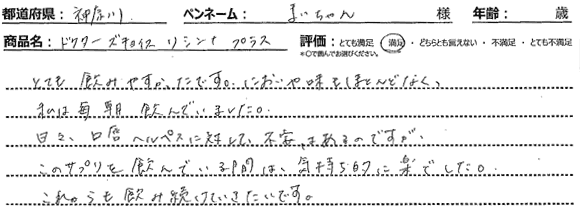 都道府県： 神奈川 ペンネーム： まいちゃん 様 年齢： 歳
商品名： ドクターズチョイス リシンナ プラス 評価： とても満足 ・ 満足 ・ どちらとも言えない ・ 不満足 ・ とても不満足
*○で囲んでお選びください。
とても 飲みやすかったです。においや味もほとんどなく、
私は毎朝 飲んでいました。
日々、口唇ヘルペスに対して、不安はあるのですが、
このサプリを飲んでいる間は、気持ち的に楽でした。
これからも飲み続けていきたいです。